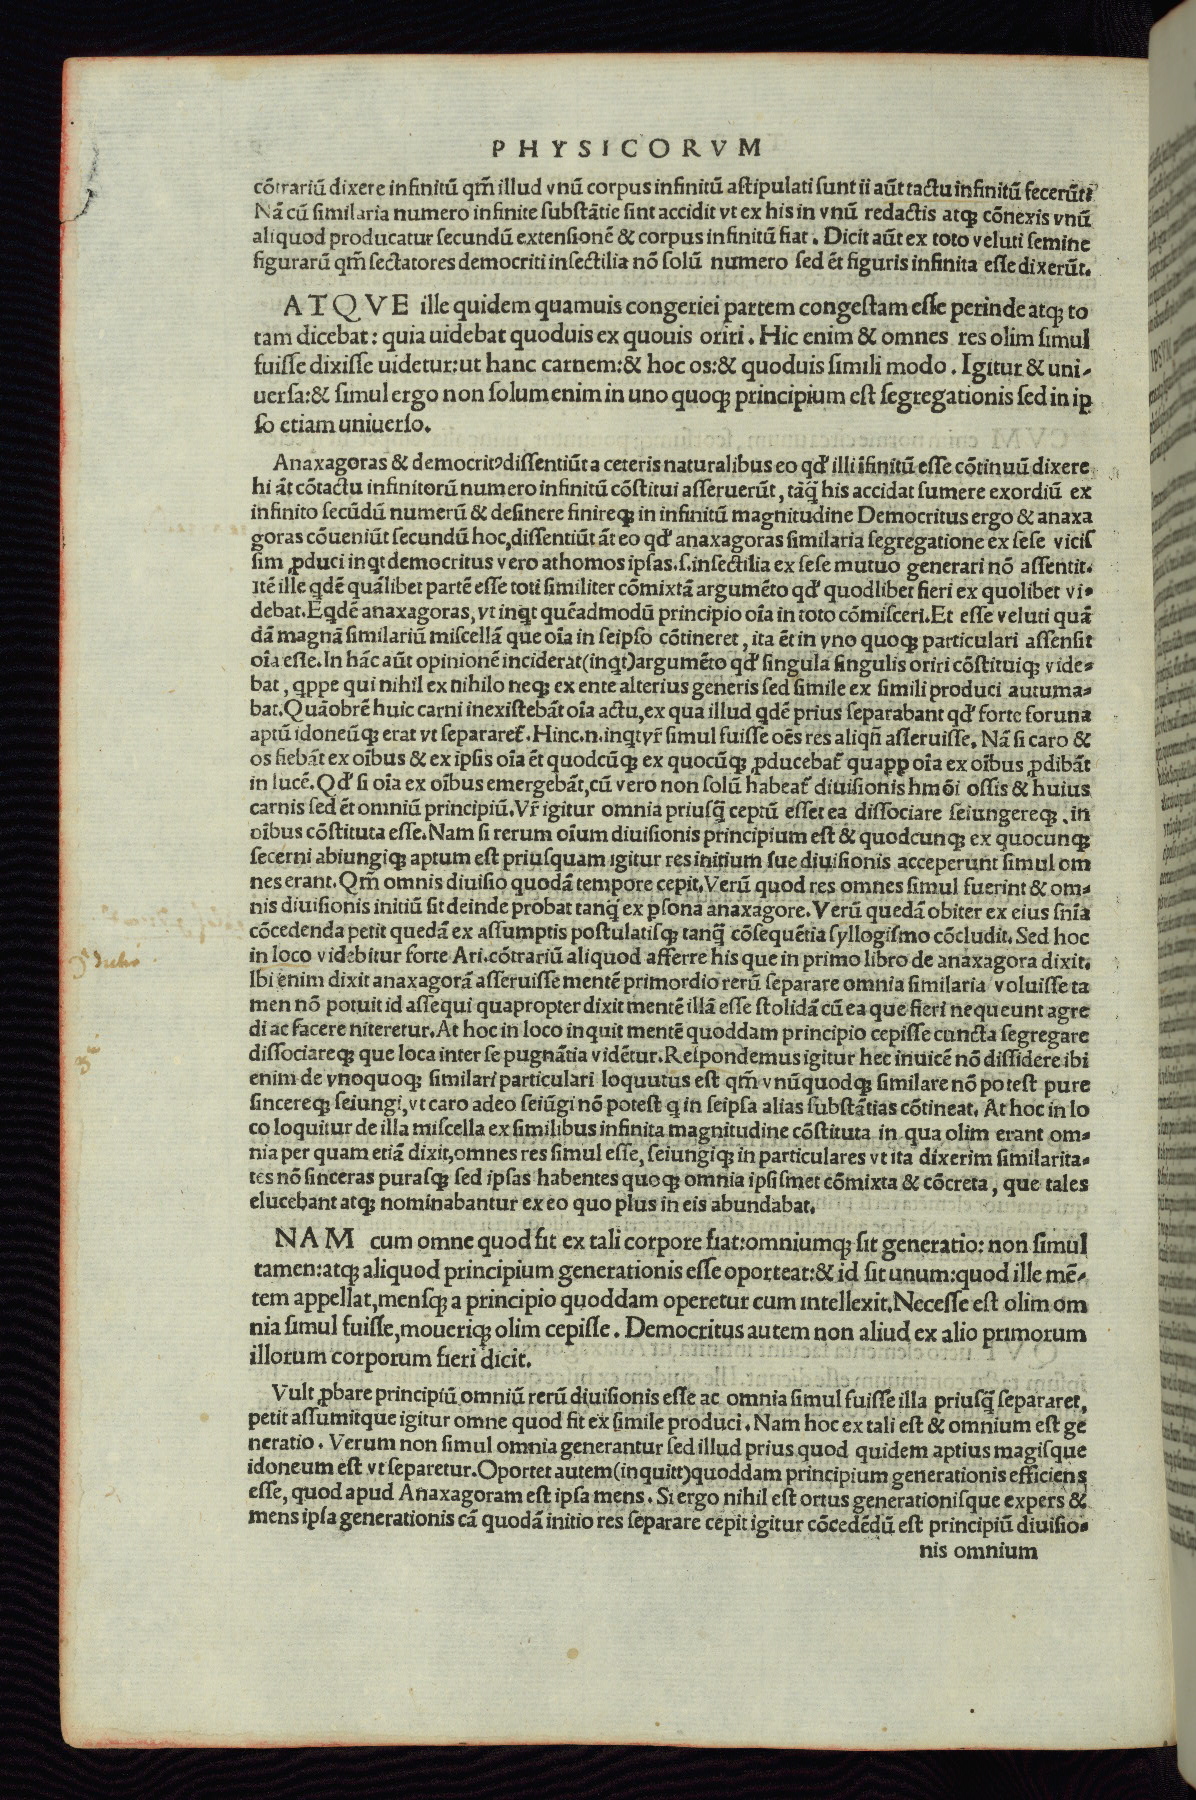 PHYSICORVM
cōtrariū dixere infinitū qm̄ illud vnū corpus infinitū astipulati sunt ii aūt tactu infinitū fecerūt:
Nā cū similaria numero infinite substātie sint accidit vt ex his in vnū redactis atq; cōnexis vnū
aliquod producatur secundū extensionē & corpus infinitū fiat. Dicit aūt ex toto veluti semine
figurarū qm̄ sectatores democriti insectilia nō solū numero sed ēt figuris infinita esse dixerūt.
ATQVE ille quidem quamuis congeriei partem congestam esse perinde atq; to
tam dicebat: quia uidebat quoduis ex quouis oriri. Hic enim & omnes res olim simul
fuisse dixisse uidetur:ut hanc carnem:& hoc os:& quoduis simili modo. Igitur & uni-
uersa:& simul ergo non solum enim in uno quoq; principium est segregationis sed in ip
so etiam uniuerso.
Anaxagoras & democritꝰ dissentiūt a ceteris naturalibus eo qd' illi īfinitū esse cōtinuū dixere
hi āt cōtactu infinitorū numero infinitū cōstitui asseruerūt, tāq̄ his accidat sumere exordiū ex
infinito secūdū numerū & desinere finireq; in infinitū magnitudine Democritus ergo & anaxa
goras cōueniūt secundū hoc, dissentiūt āt eo qd' anaxagoras similaria segregatione ex sese vicis
sim ꝓduci inqt democritus vero athomos ipsas.s.insectilia ex sese mutuo generari nō assentit.
Itē ille qdē quālibet partē esse toti similiter cōmixtā argumēto qd' quodlibet fieri ex quolibet vi-
debat. Eqdē anaxagoras, vt inqt quēadmodū principio oīa in toto cōmisceri. Et esse veluti quā
dā magnā similariū miscellā que oīa in seipso cōtineret, ita ēt in vno quoq; particulari assensit
oīa esse. In hāc aūt opinionē inciderat(inqt)argumēto qd' singula singulis oriri cōstituiq; vide-
bat, qppe qui nihil ex nihilo neq; ex ente alterius generis sed simile ex simili produci autuma-
bat. Quāobrē huic carni inexistebāt oīa actu, ex qua illud qdē prius separabant qd' forte foruna
aptū idoneūq; erat vt separaret̄. Hinc.n.inqt vr̄ simul fuisse oēs res aliqn̄ asseruisse. Nā si caro &
os fiebāt ex oībus & ex ipsis oīa ēt quodcūq; ex quocūq; ꝓducebat̄ quaꝓꝑ oīa ex oībus ꝓdibāt
in lucē. Qd' si oīa ex oībus emergebāt, cū vero non solū habeat̄ diuisionis hmōi ossis & huius
carnis sed ēt omniū principiū. Vr̄ igitur omnia priusq̄ ceptū esset ea dissociare seiungereq; in
oībus cōstituta esse. Nam si rerum oīum diuisionis principium est & quodcunq; ex quocunq;
secerni abiungiq; aptum est priusquam igitur res initium sue diuisionis acceperunt simul om
nes erant. Qm̄ omnis diuisio quodā tempore cepit. Verū quod res omnes simul fuerint & om-
nis diuisionis initiū sit deinde probat tanq̄ ex ꝑsona anaxagore. Verū quedā obiter ex eius snīa
cōcedenda petit quedā ex assumptis postulatisq; tanq̄ cōsequētia syllogismo cōcludit. Sed hoc
in loco videbitur forte Ari. cōtrariū aliquod afferre his que in primo libro de anaxagora dixit.
Ibi enim dixit anaxagorā asseruisse mentē primordio rerū separare omnia similaria voluisse ta
men nō potuit id assequi quapropter dixit mentē illā esse stolidā cū ea que fieri nequeunt agre
di ac facere niteretur. At hoc in loco inquit mentē quoddam principio cepisse cuncta segregare
dissociareq; que loca inter se pugnātia vidētur. Respondemus igitur hec inuicē nō dissidere ibi
enim de vnoquoq; similari particulari loquutus est qm̄ vnūquodq; similare nō potest pure
sincereq; seiungi, vt caro adeo seiūgi nō potest q in seipsa alias substātias cōtineat. At hoc in lo
co loquitur de illa miscella ex similibus infinita magnitudine cōstituta in qua olim erant om-
nia per quam etiā dixit, omnes res simul esse, seiungiq; in particulares vt ita dixerim similarita-
tes nō sinceras purasq; sed ipsas habentes quoq; omnia ipsismet cōmixta & cōcreta, que tales
elucebant atq; nominabantur ex eo quo plus in eis abundabat.
NAM cum omne quod fit ex tali corpore fiat:omniumq; sit generatio: non simul
tamen:atq; aliquod principium generationis esse oporteat:& id sit unum:quod ille mē-
tem appellat, mensq; a principio quoddam operetur cum intellexit. Necesse est olim om
nia simul fuisse, moueriq; olim cepisse. Democritus autem non aliud ex alio primorum
illorum corporum fieri dicit.
Vult ꝓbare principiū omniū rerū diuisionis esse ac omnia simul fuisse illa priusq̄ separaret,
petit assumitque igitur omne quod fit ex simile produci. Nam hoc ex tali est & omnium est ge
neratio. Verum non simul omnia generantur sed illud prius quod quidem aptius magisque
idoneum est vt separetur. Oportet autem(inquitt)quoddam principium generationis efficiens
esse, quod apud Anaxagoram est ipsa mens. Si ergo nihil est ortus generationisque expers &
mens ipsa generationis cā quodā initio res separare cepit igitur cōcedēdū est principiū diuisio-
nis omnium